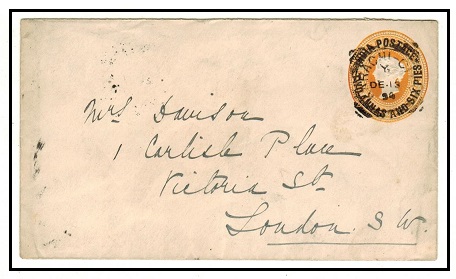 INDIA POSTAGE
TWO ANNAS AND SIX PIES
KARACHI
Y
DE 13
94
Mrs Davison
1 Carlisle Place
Victoria St.
London. S W.